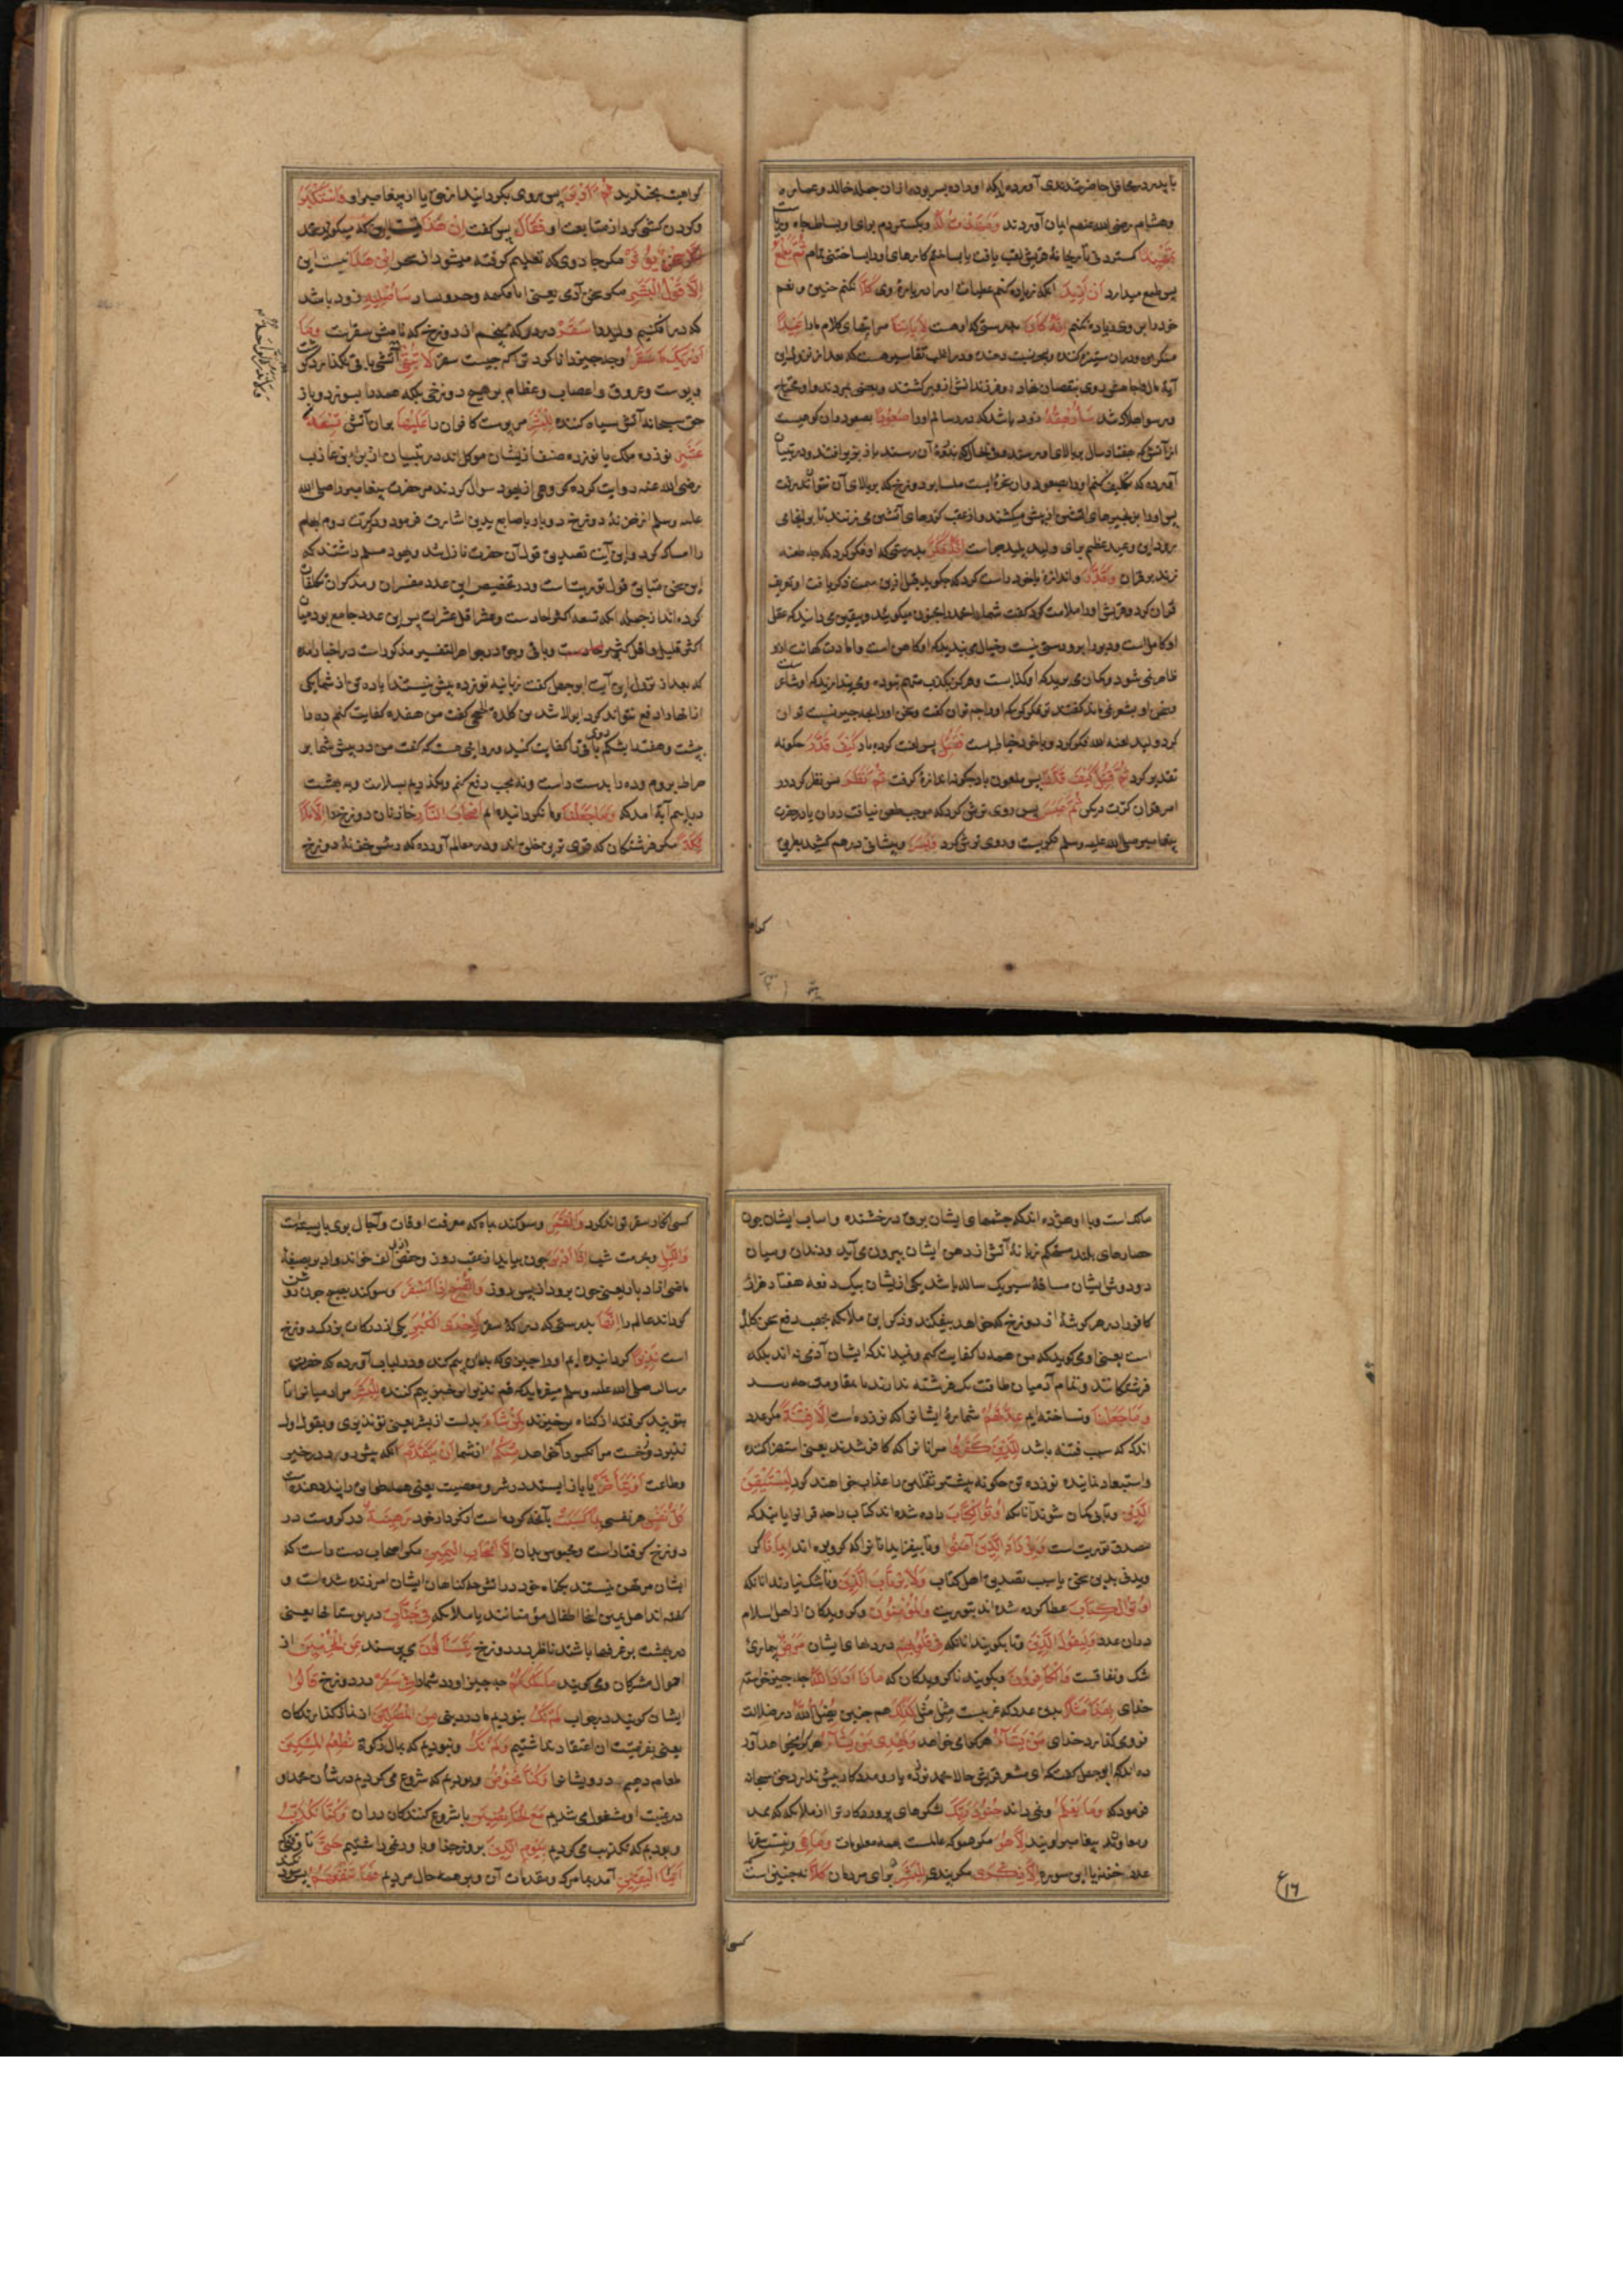 با پدر در محافل حاضر شدندی آورده اند که او را ده پسر بوده از آن جمله خالد و عماره
و هشام رضی الله عنهم ایمان آوردند وَمَهَّدْتُ لَهُ و بگستردم برای او بساط جاه و ریاست
تَمْهِيدًا گستردنی تا ریحانهٔ قریش لقب یافت یا بساختم کارهای او را ساختنی تمام ثُمَّ يَطْمَعُ
پس طمع میدارد أَنْ أَزِيدَ آنکه زیاده کنم عطیات او را در باره وی كَلَّا نکنم چنین و نعم
خود را بر وی زیاده نکنم إِنَّهُ كَانَ بدرستی که او هست لِآيَاتِنَا مر آیتهای کلام ما را عَنِيدًا
منکر و در آن ستیزه کننده و بسحر نسبت دهنده و در اغلب تفاسیر هست که بعد از نزول این
آیة مال و جاه وی روی بنقصان نهاد و فرزندانش از وی برگشتند و بعضی بمردند و او محتاج
و رسوا هلاک شد سَأُرْهِقُهُ زود باشد که در رسانم او را صَعُودًا بصعود و آن کوهیست
از آتش که هفتاد سال بر بالای او میرسند و بذروهٔ آن رسند باز بزیر افتند و در تبیان
آورده که تکلیف کنم او را صعود و آن عقبهٔ ایست ملسا در دوزخ که بر بالای آن نتوانند رفت
پس او را بزنجیرهای آتشین از پیش میکشند و از عقب گرزهای آتشین می زنند تا بر انجای
برود این وعید عظیم برای ولید پلید چراست إِنَّهُ فَكَّرَ بدرستی که او فکر کرد که چه طعنه
زند بر قرآن وَقَدَّرَ و اندازه با خود راست کرد که چه گوید قبل ازین سمت ذکر یافت او تعریف
قرآن کرد و قریش او را ملامت کرد گفت شما محمد را مجنون میگوئید و بیقین می دانید که عقل
او کامل است و دیو را برو دستی نیست و خیال می بندید که او کاهن است و امارت کهانت ازو
ظاهر نمی شود و گمان می برید که او کذابست و هرگز بکذب متهم نبوده و می پندارید که او شاعر است
و سخن او بشعر نمی ماند گفتند تو فکر کن که او را چه توان گفت و سخن او را بچه چیز نسبت توان
کرد ولید لعنه الله فکر کرد و با خود خیالی بست فَقُتِلَ پس لعنت کرده باد كَيْفَ قَدَّرَ چگونه
تقدیر کرد ثُمَّ قُتِلَ كَيْفَ قَدَّرَ پس ملعون باد چگونه اندازه گرفت ثُمَّ نَظَرَ پس نظر کرد در
امر قرآن کرت دیگر ثُمَّ عَبَسَ پس روی ترش کرد که موجب طعن نیافت در آن یا در حضرت
پیغامبر صلی الله علیه وسلم نگریست و روی ترش کرد وَبَسَرَ و پیشانی درهم کشید بطریق
کراه
کراهیت بخندید ثُمَّ أَدْبَرَ پس روی بگردانید از حق یا از پیغامبر او وَاسْتَكْبَرَ
و گردن کشی کرد از متابعت او فَقَالَ پس گفت إِنْ هَذَا نیست این که میگوید محمد
إِلَّا سِحْرٌ يُؤْثَرُ مگر جادوی که تعلیم گرفته میشود از سحره إِنْ هَذَا نیست این
إِلَّا قَوْلُ الْبَشَرِ مگر سخن آدمی یعنی سَأُصْلِيهِ زود باشد
که در افکنیم ولید را سَقَرَ در درکه پنجم از دوزخ که نامش سقر است وَمَا
أَدْرَاكَ مَا سَقَرُ و چه چیز دانا کرد ترا که چیست سقر لَا تُبْقِي آتشی باقی نگذارد گوشت
و پوست و عروق و اعصاب و عظام بر هیچ دوزخی بلکه همه را بسوزد و باز
حق سبحانه آتش سیاه کننده لِلْبَشَرِ مر پوست کافران را عَلَيْهَا بر آن آتش تِسْعَةَ
عَشَرَ نوزده ملک یا نوزده صنف از ایشان موکل اند در تبیان از براء بن عازب
رضی الله عنه روایت کرده که رهطی از یهود سوال کردند مر حضرت پیغامبر را صلی الله
علیه وسلم از خزنهٔ دوزخ دو بار باصابع یدین اشارت فرمود و کرت دوم ابهام
را امساک کرد و این آیت تصدیق قول آن حضرت نازل شد و یهود مسلم داشتند که
این سخن مطابق قول توریت است و در تخصیص این عدد مفسران و مذکران تکلفات
کرده اند از جمله آنکه تسعه اکثر احادست و عشر اقل عشرات پس این عدد جامع بود میان
اکثر قلیل و اقل کثیر و باقی وجوه در جواهر التفسیر مذکور است در اخبار آمده
که بعد از نزول این آیت ابوجهل گفت زبانیه نوزده بیش نیستند آیا ده تن از شما یکی
از آنها را دفع نتواند کرد ابو الاشد بن کلده جمحی گفت من هفده کفایت کنم ده را
به پشت و هفت را بشکم باقی دو را کفایت کنید و روایتی هست که گفت من در پیش شما بر
صراط بروم و ده را بدست راست و نه را بچپ دفع کنم و بگذریم بسلامت و به بهشت
درآییم آیة آمد که وَمَا جَعَلْنَا و ما نگردانیده ایم أَصْحَابَ النَّارِ خازنان دوزخ را إِلَّا مَلَا
ئِكَةً مگر فرشتگان که قوی ترین خلق اند و در معالم آورده که رئیس خزنهٔ دوزخ
مالک است و با او هژده اند که چشمهای ایشان برق درخشنده و اسنان ایشان چون
حصارهای بلند مستحکم زبانهٔ آتش از دهن ایشان بیرون می آید و دندان و میان
دو دوش ایشان مسافهٔ سیر یک ساله باشد یکی از ایشان بیک دفعه هفتاد هزار
کافر را در هر گوشهٔ از دوزخ که خواهد بیفکند و ذکر این ملائکه بجهت دفع سخن کلده
است یعنی او می گوید که من همه را کفایت کنم و نمیداند که ایشان آدمی نه اند بلکه
فرشتگانند و تمام آدمیان طاقت یک فرشته ندارند تا بمقاومت چه رسد
وَمَا جَعَلْنَا و نساخته ایم عِدَّتَهُمْ شمارهٔ ایشان را که نوزده است إِلَّا فِتْنَةً مگر عدد
اندک که سبب فتنه باشد لِلَّذِينَ كَفَرُوا مر آنان را که کافر شدند یعنی استهزا کنند
و استبعاد نمایند نوزده تن چگونه بیشتر ثقلین را عذاب خواهند کرد لِيَسْتَيْقِنَ
الَّذِينَ و تا بی گمان شوند آنانکه أُوتُوا الْكِتَابَ داده شده اند کتاب را چه قرآن را یابند که
مصدق توریت است وَيَزْدَادَ الَّذِينَ آمَنُوا و تا بیفزایند آنان را که گرویده اند إِيمَانًا گر
ویدنی بدین سخن یا سبب تصدیق اهل کتاب وَلَا يَرْتَابَ الَّذِينَ و تا شک نیارند آنانکه
أُوتُوا الْكِتَابَ عطا کرده شده اند بتوریت وَالْمُؤْمِنُونَ و گرویدگان از اهل اسلام
در آن عدد وَلِيَقُولَ الَّذِينَ و تا بگویند آنانکه فِي قُلُوبِهِمْ در دلهای ایشان مَرَضٌ بیماری
شک و نفاقست وَالْكَافِرُونَ و بگویند ناگرویدگان که مَاذَا أَرَادَ اللَّهُ چه چیز خواسته
خدای بِهَذَا مَثَلًا بدین عدد که غریبست مثل كَذَلِكَ هم چنین يُضِلُّ اللَّهُ در ضلالت
فروی گذارد خدای مَنْ يَشَاءُ هر که را می خواهد وَيَهْدِي مَنْ يَشَاءُ هر که را میخواهد آورده
ده اند که ابوجهل گفت که ای معشر قریش حالا محمد نوزده یار و مددکار بیش ندارد حق سبحانه
فرمود که وَمَا يَعْلَمُ و نمی داند جُنُودَ رَبِّكَ لشکرهای پروردگار ترا از ملائکه که ممد
و معاون پیغامبر اویند إِلَّا هُوَ مگر هم او که عالمست بهمه معلومات وَمَا هِيَ و نیست سقر یا
عدد خزنه یا این سوره إِلَّا ذِكْرَى مگر پندی لِلْبَشَرِ برای مردمان كَلَّا نه چنین است
ع ۱۶
کسی
کسی انکار سقر تواند کرد وَالْقَمَرِ و سوگند بماه که معرفت اوقات و آجال بوی باز بسته است
وَاللَّيْلِ و بحرمت شب إِذْ أَدْبَرَ چون بیاید از عقب روز و حفص اذ بی الف خواند و ادبر بصیغهٔ
ماضی از ادبار یعنی چون برود از پس روز وَالصُّبْحِ إِذَا أَسْفَرَ و سوگند بصبح چون روشن
گرداند عالم را إِنَّهَا بدرستی که درکهٔ سقر لَإِحْدَى الْكُبَرِ یکی از درکات بزرگ دوزخ
است نَذِيرًا گردانیده ایم او را چیزی که بدان بیم کنند و در لباب آورده که حضرت
رسالت صلی الله علیه وسلم میفرماید که قم نذیرا برخیز بیم کننده لِلْبَشَرِ مر آدمیان را تا
بتو پند گرفته از گناه بپرهیزند لِمَنْ شَاءَ بدلست از بشر یعنی تو نذیری و بقول اول
نذیر دوزخست مر آنکس را که خواهد مِنْكُمْ از شما أَنْ يَتَقَدَّمَ آنکه پیش رود در خیر
و طاعت أَوْ يَتَأَخَّرَ یا باز ایستد در شر و معصیت یعنی همه خلق را بیم دهنده است
كُلُّ نَفْسٍ هر نفسی بِمَا كَسَبَتْ بآنچه کرده است از کردار خود رَهِينَةٌ در گروست در
دوزخ گرفتار است و محبوس بدان إِلَّا أَصْحَابَ الْيَمِينِ مگر اصحاب دست راست که
ایشان مرهون نیستند بگناه خود در آتش چه گناهان ایشان آمرزیده شده است و
گفته اند اهل یمین اینجا اطفال مؤمنانند یا ملائکه فِي جَنَّاتٍ در بوستانها یعنی
در بهشت بر غرفها باشند ناظر بدوزخ يَتَسَاءَلُونَ می پرسند عَنِ الْمُجْرِمِينَ از
احوال مشرکان و می گویند مَا سَلَكَكُمْ چه چیز آورد شما را فِي سَقَرَ در دوزخ قَالُوا
ایشان گویند در جواب لَمْ نَكُ نبودیم ما در دنیا مِنَ الْمُصَلِّينَ از نماز گذارندگان
یعنی بفرضیت آن اعتقاد نداشتیم وَلَمْ نَكُ و نبودیم که بمال زکوة نُطْعِمُ الْمِسْكِينَ
طعام دهیم درویشان را وَكُنَّا نَخُوضُ و بودیم که شروع می کردیم در شأن محمد و
در غیبت او مشغول می شدیم مَعَ الْخَائِضِينَ با شروع کنندگان در آن وَكُنَّا نُكَذِّبُ
و بودیم که تکذیب می کردیم بِيَوْمِ الدِّينِ بروز جزا و باور نمی داشتیم حَتَّى تا وقتی که
أَتَانَا الْيَقِينُ آمد بما مرگ و مقدمات آن و برهمه حال مردیم فَمَا تَنْفَعُهُمْ پس سود نکند